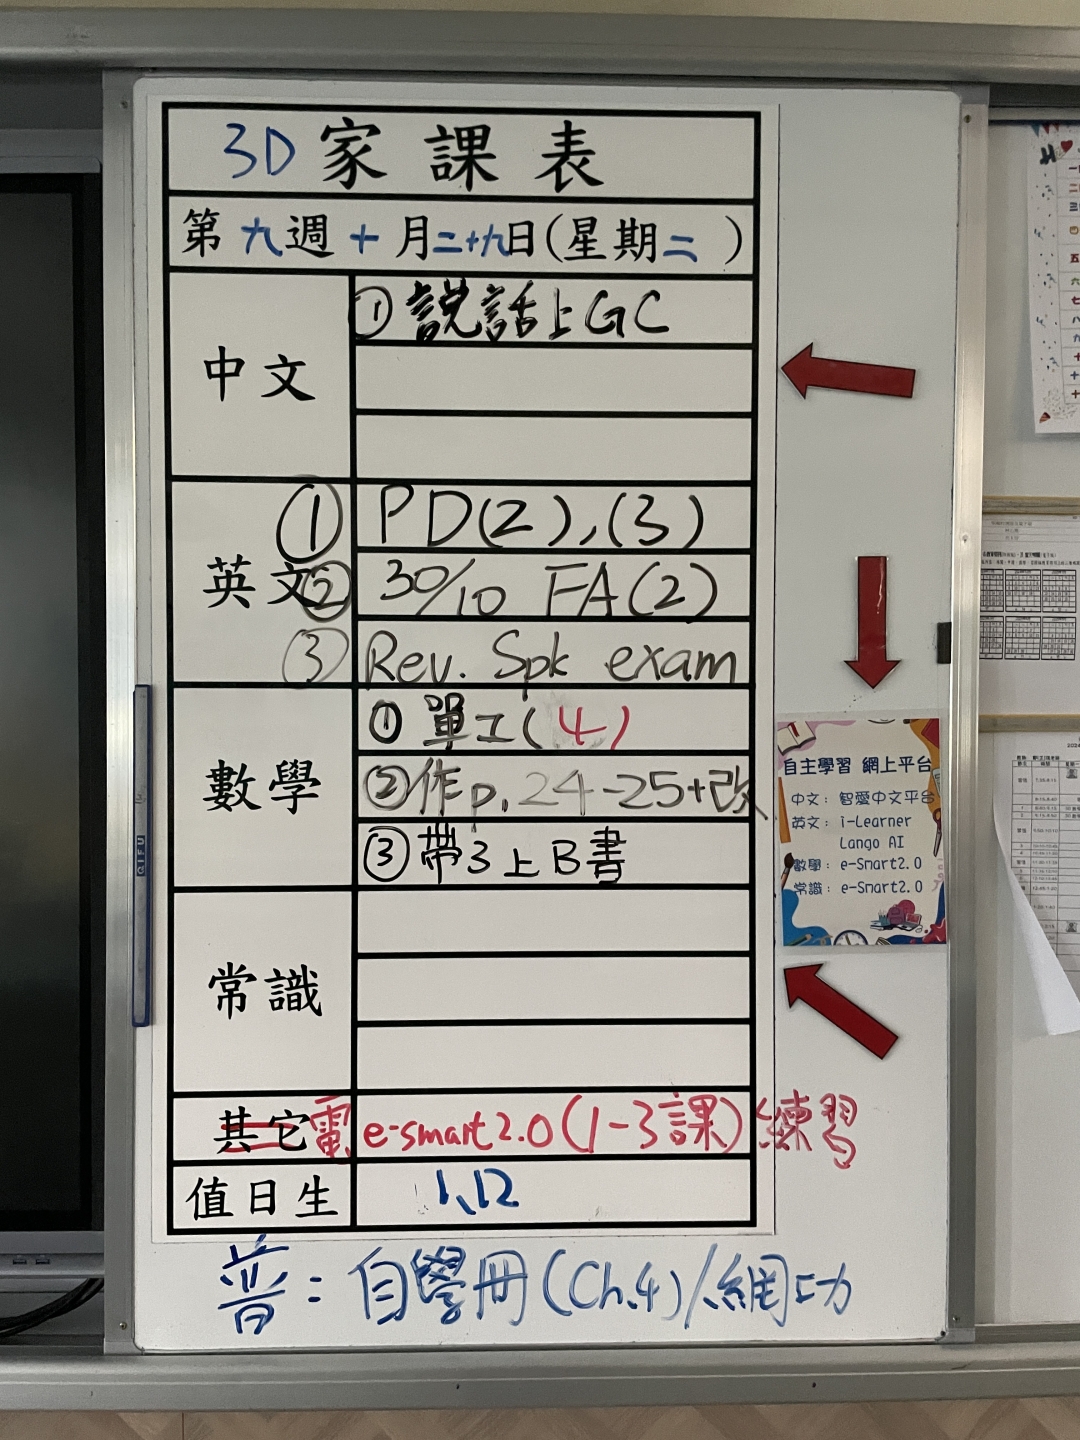 3D 家課表
第九週十月二十九日(星期二)
中文
①說話上GC
英文
① PD(2),(3)
② 30/10 FA(2)
③ Rev. Spk exam
數學
① 單工(4)
②作p.24-25+改
③帶3上B書
常識
其它 電 e-smart2.0(1-3課)練習
值日生 1、12
普:自學冊(Ch.4)/網功
自主學習 網上平台
中文: 智愛中文平台
英文: i-Learner
Lango AI
數學: e-Smart2.0
常識: e-Smart2.0
QIFU